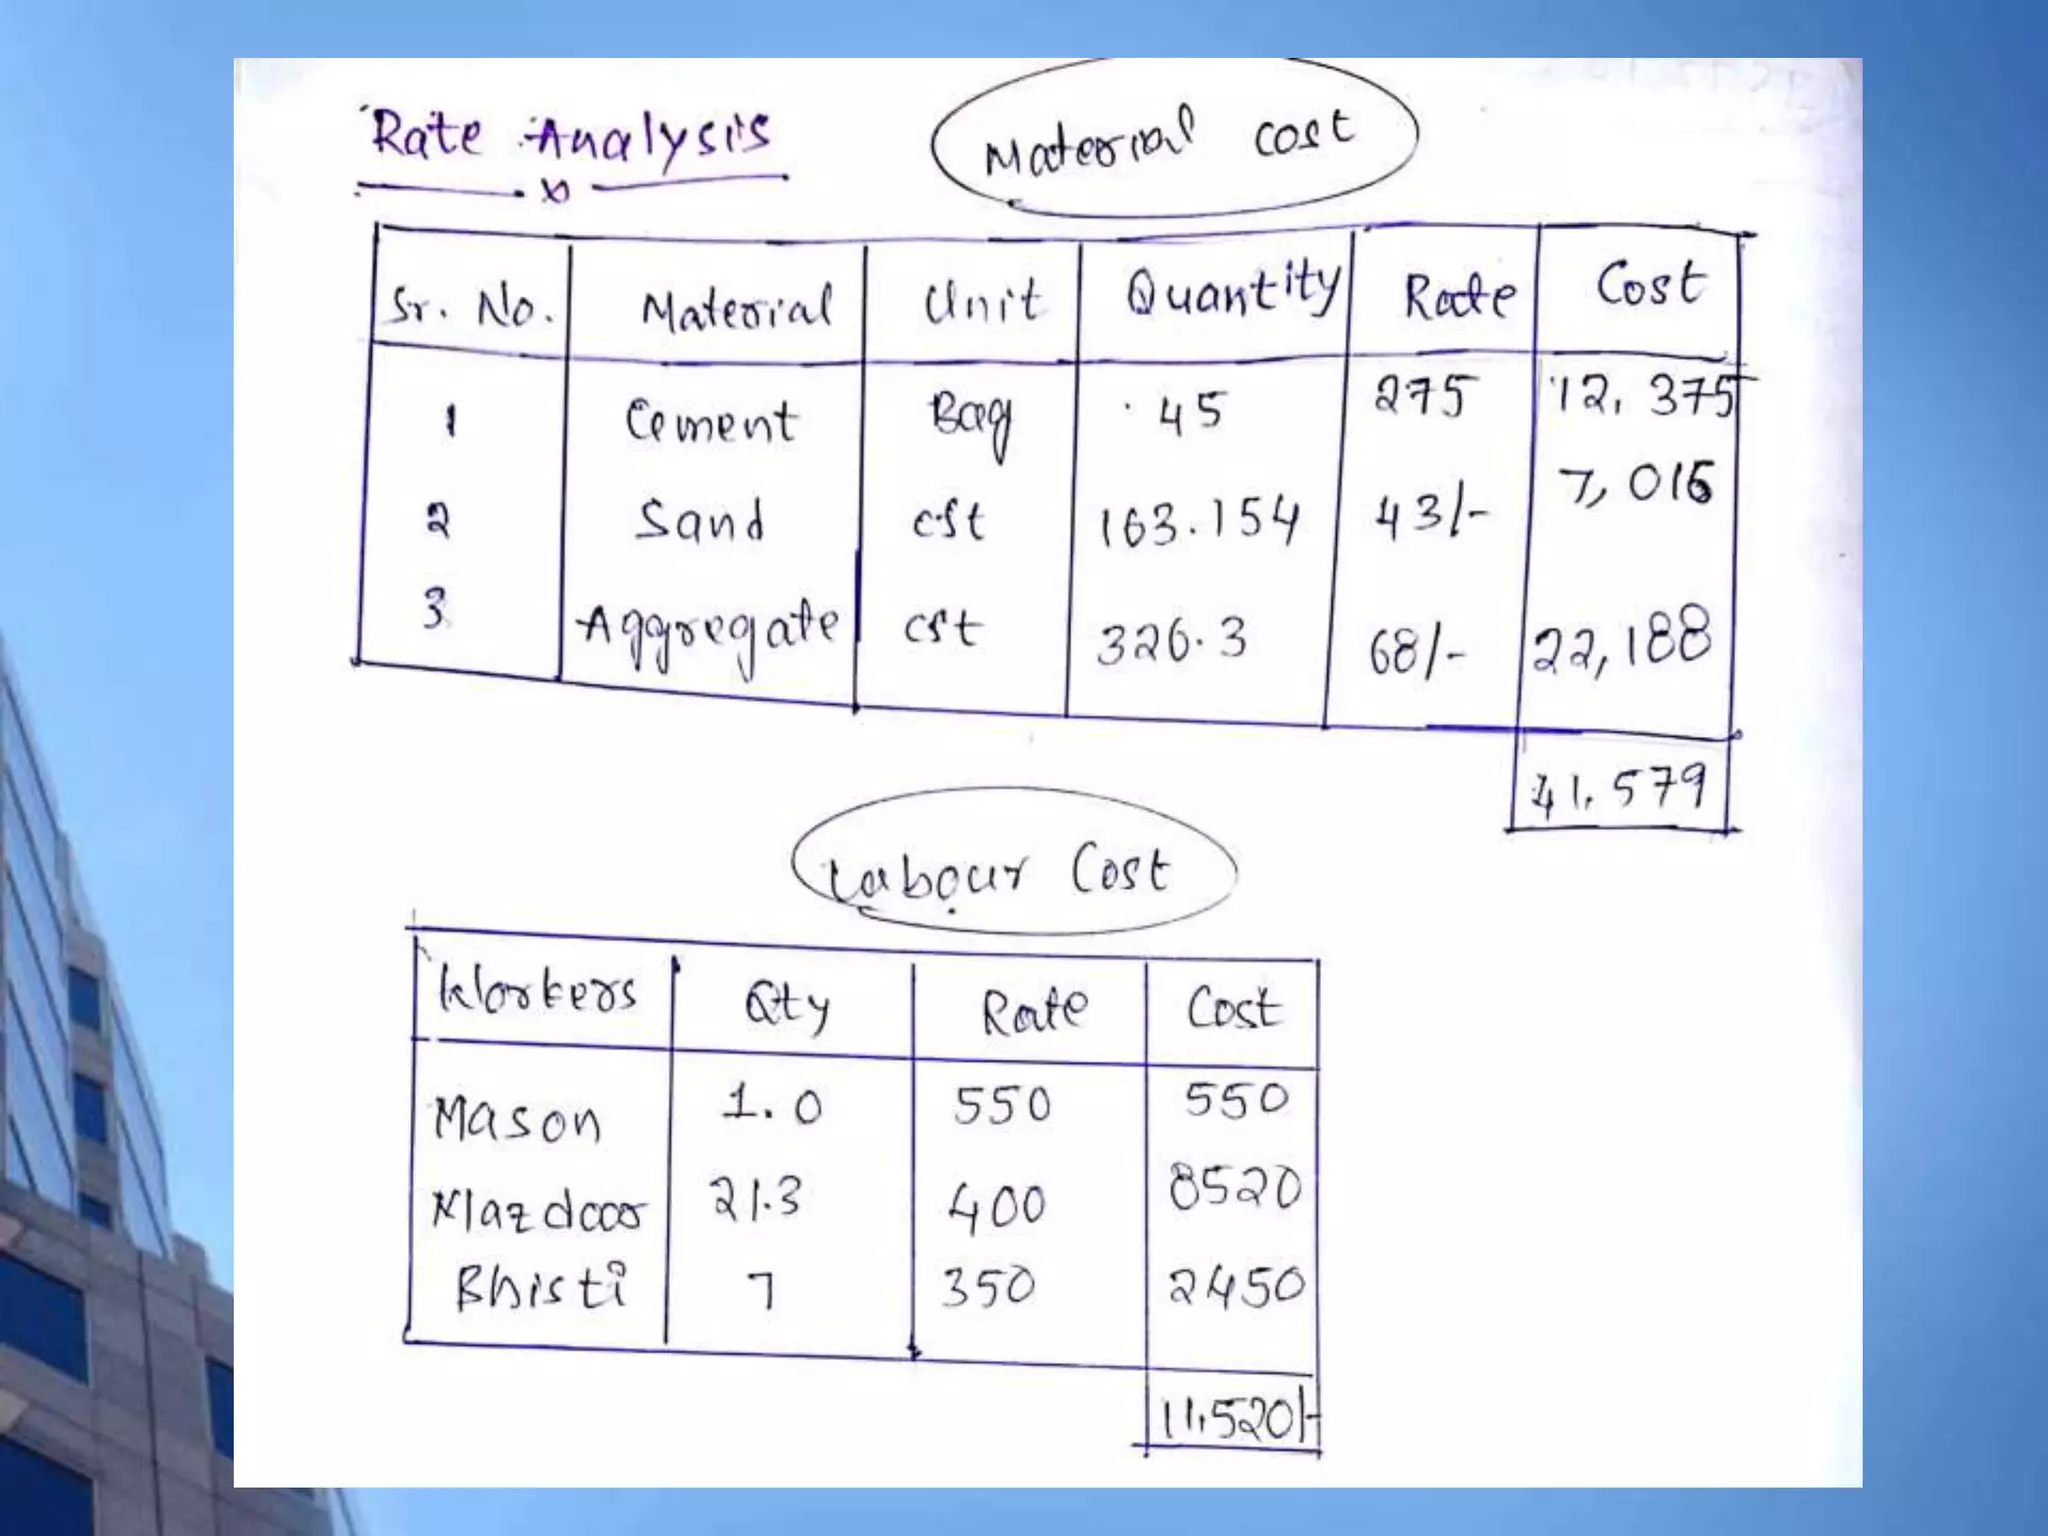 Rate Analysis
Material cost
Sr. No. Material Unit Quantity Rate Cost
1 Cement Bag 45 275 12,375
2 Sand cft 163.154 43/- 7,016
3 Aggregate cft 326.3 68/- 22,188
41,579
Labour Cost
Workers Qty Rate Cost
Mason 1.0 550 550
Mazdoor 21.3 400 8520
Bhisti 7 350 2450
11,520/-